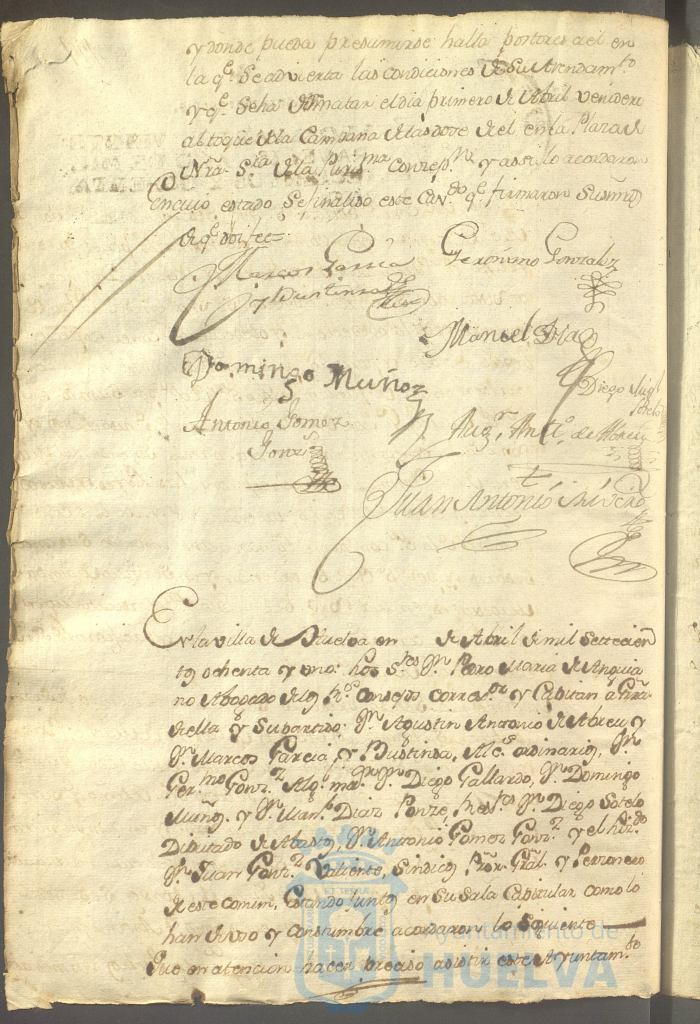 y donde pueda presumirse halla postores a el en
la q.e se advierta las condiciones de su Arrendam.to
y q.e se ha de rematar el dia primero de Abril venidero
al toque de la Campana de las doce de el en la Plaza de
Nra. S.ra de la Puris.ma Concep.n y assi lo acordaron
En cuio estado se finalizo este Cav.do q.e firmaron sus mrds
de q.e doi fee=
Marcos Garcia
y Bustinza
Geronimo Gonzalez
Manuel Diaz
Domingo Muñoz
Diego Mig.l
Sotelo
Antonio Gomez
Gonz.z
Juan Antonio Rivero
En la villa de Huelva en de Abril de mil setecien
tos ochenta y uno: los S.res D.n Pedro Maria de Anguia
no Abogado de los R.s Consejos correx.or y Capitan a Grra.
de ella y su partido: D.n Agustin Antonio de Abreu y
D.n Marcos Garcia y Bustinsa, Alc.es ordinarios, D.n
Ger.mo Gonz.z Alg.l ma.or D.n Diego Gallardo, D.n Domingo
Muñoz y D.n Man.l Diaz Ponze, D.n Diego Sotelo
Diputado de Abastos, D.n Antonio Gomez Gonz.z y el
D.n Juan Gonz.z Valiente, Sindicos Pror. Gral. y Personero
de este comun, estando juntos en su Sala Capitular como lo
han de uso y constumbre acordaron lo siguiente
Que en atencion hacer preciso asistir este Ayuntam.to
Ayuntamiento de
HUELVA